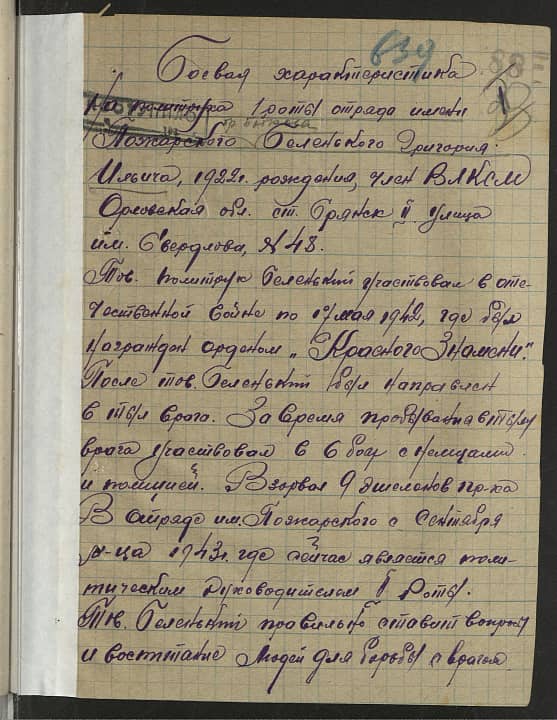 639
Боевая характеристика
на политрука 1 роты отряда имени
Пожарского Беленького Григория
Ильича, 1922г. рождения, член ВЛКСМ
Орловская обл. ст. Брянск II улица
им. Свердлова, № 48.
Тов. политрук Беленький участвовал в оте-
чественной войне по 17 мая 1942, где был
награжден орденом „Красного Знамени".
После тов. Беленький был направлен
в тыл врага. За время пробывания в тылу
врага участвовал в 6 боях с немцами
и полицией. Взорвал 9 эшелонов пр-ка
В отряде им. Пожарского с сентября
м-ца 1943г. где сейчас является поли-
тическим руководителем II роты.
Тов. Беленький правильно ставит вопросы
и воспитание людей для борьбы с врагом